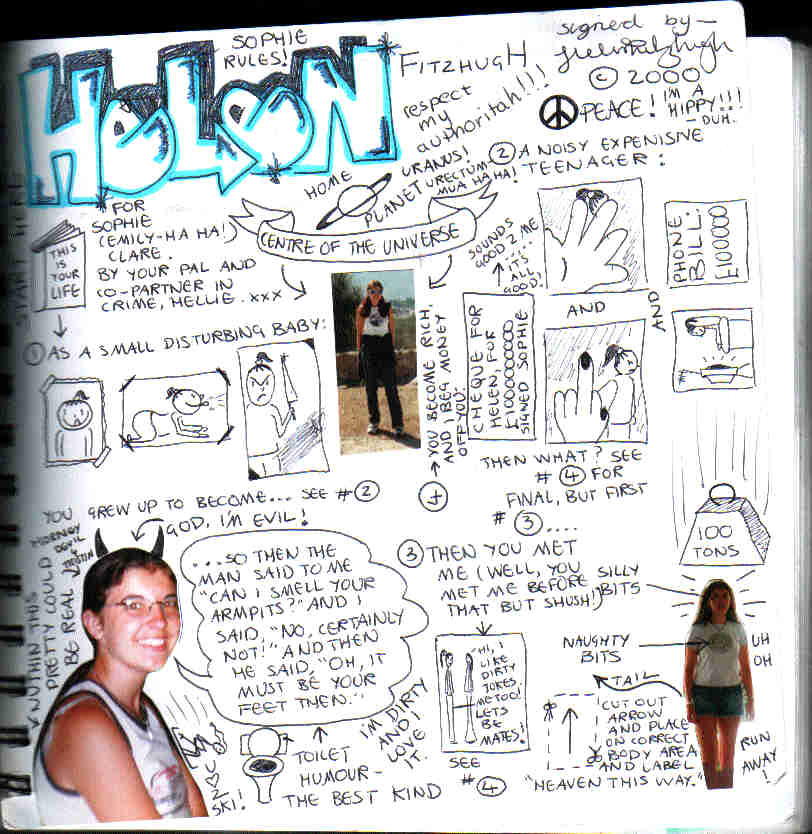 SOPHIE
RULES!
HELEN
FITZHUGH
signed by –
© 2000
respect
my
authoritah!!!
PEACE! I'M A
HIPPY!!!
– DUH.
START HERE
THIS
IS
YOUR
LIFE
FOR
SOPHIE
(EMILY-HA HA!)
CLARE.
BY YOUR PAL AND
CO-PARTNER IN
CRIME, HELLIE. xxx
HOME
PLANET
URANUS!
URECTUM-
MUA HA HA!
CENTRE OF THE UNIVERSE
① AS A SMALL DISTURBING BABY:
YOU GREW UP TO BECOME... SEE #②
② A NOISY EXPENISIVE
TEENAGER:
PHONE
BILL:
£100000
AND
AND
SOUNDS
GOOD 2 ME
.....
IT'S
ALL
GOOD!
CHEQUE FOR
HELEN, FOR
SIGNED SOPHIE
YOU BECOME RICH,
AND I BEG MONEY
OFF YOU.
THEN WHAT? SEE
#④ FOR
FINAL, BUT FIRST
#③....
100
TONS
GOD, I'M EVIL!
NUTHIN THIS
PRETTY COULD
BE REAL
...SO THEN THE
MAN SAID TO ME
"CAN I SMELL YOUR
ARMPITS?" AND I
SAID, "NO, CERTAINLY
NOT!" AND THEN
HE SAID, "OH, IT
MUST BE YOUR
FEET THEN."
I'M DIRTY
AND I
LOVE
IT.
TOILET
HUMOUR –
THE BEST KIND
U ♡ 2
SKI!
③ THEN YOU MET
ME (WELL, YOU
MET ME BEFORE
THAT BUT SHUSH!)
"HI, I
LIKE
DIRTY
JOKES.
ME TOO!
LETS
BE
MATES!
SEE
#④
SILLY
BITS
NAUGHTY
BITS
TAIL
CUT OUT
ARROW
AND PLACE
ON CORRECT
BODY AREA
AND LABEL
"HEAVEN THIS WAY."
UH
OH
RUN
AWAY
!